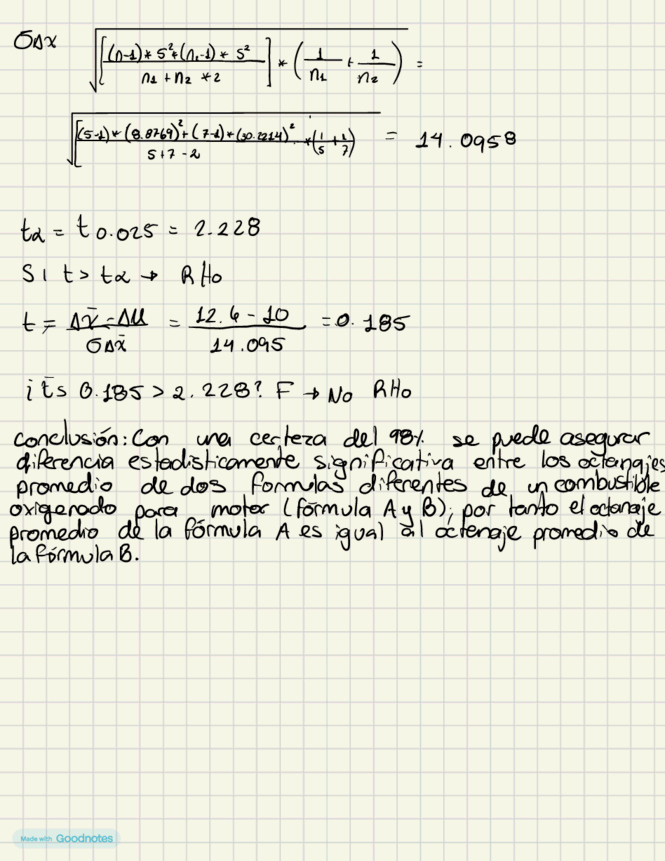 σΔx √[((n-1)*S²+(n,-1)*S²)/(n1+n2*2)]*(1/n1+1/n2) =
√((5-1)*(8.8769)²+(7-1)*(30.2214)²/(5+7-2)*(1/5+1/7)) = 14.0958
tα = t0.025 = 2.228
Si t > tα → RHo
t = (Δx̄-Δμ)/σΔx̄ = (12.6-10)/14.095 = 0.185
¿ts 0.185 > 2.228? F → No RHo
conclusión: Con una certeza del 98% se puede asegurar
diferencia estadisticamente significativa entre los octanajes
promedio de dos formulas diferentes de un combustible
oxigenado para motor (fórmula A y B), por tanto el octanaje
promedio de la fórmula A es igual al octenaje promedio de
la fórmula B.
Made with Goodnotes